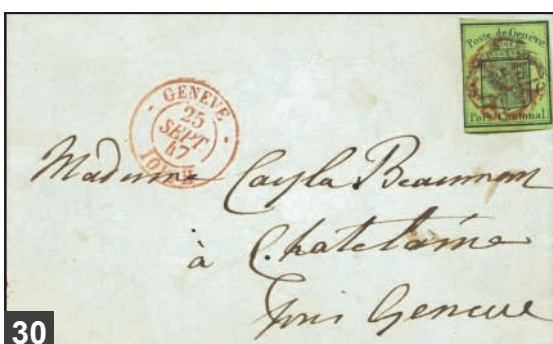 Poste de Genève
Port Cantonal
GENEVE
25
SEPT
47
Madame Cayla Beaumont
à Chatelaine
Geneve
30